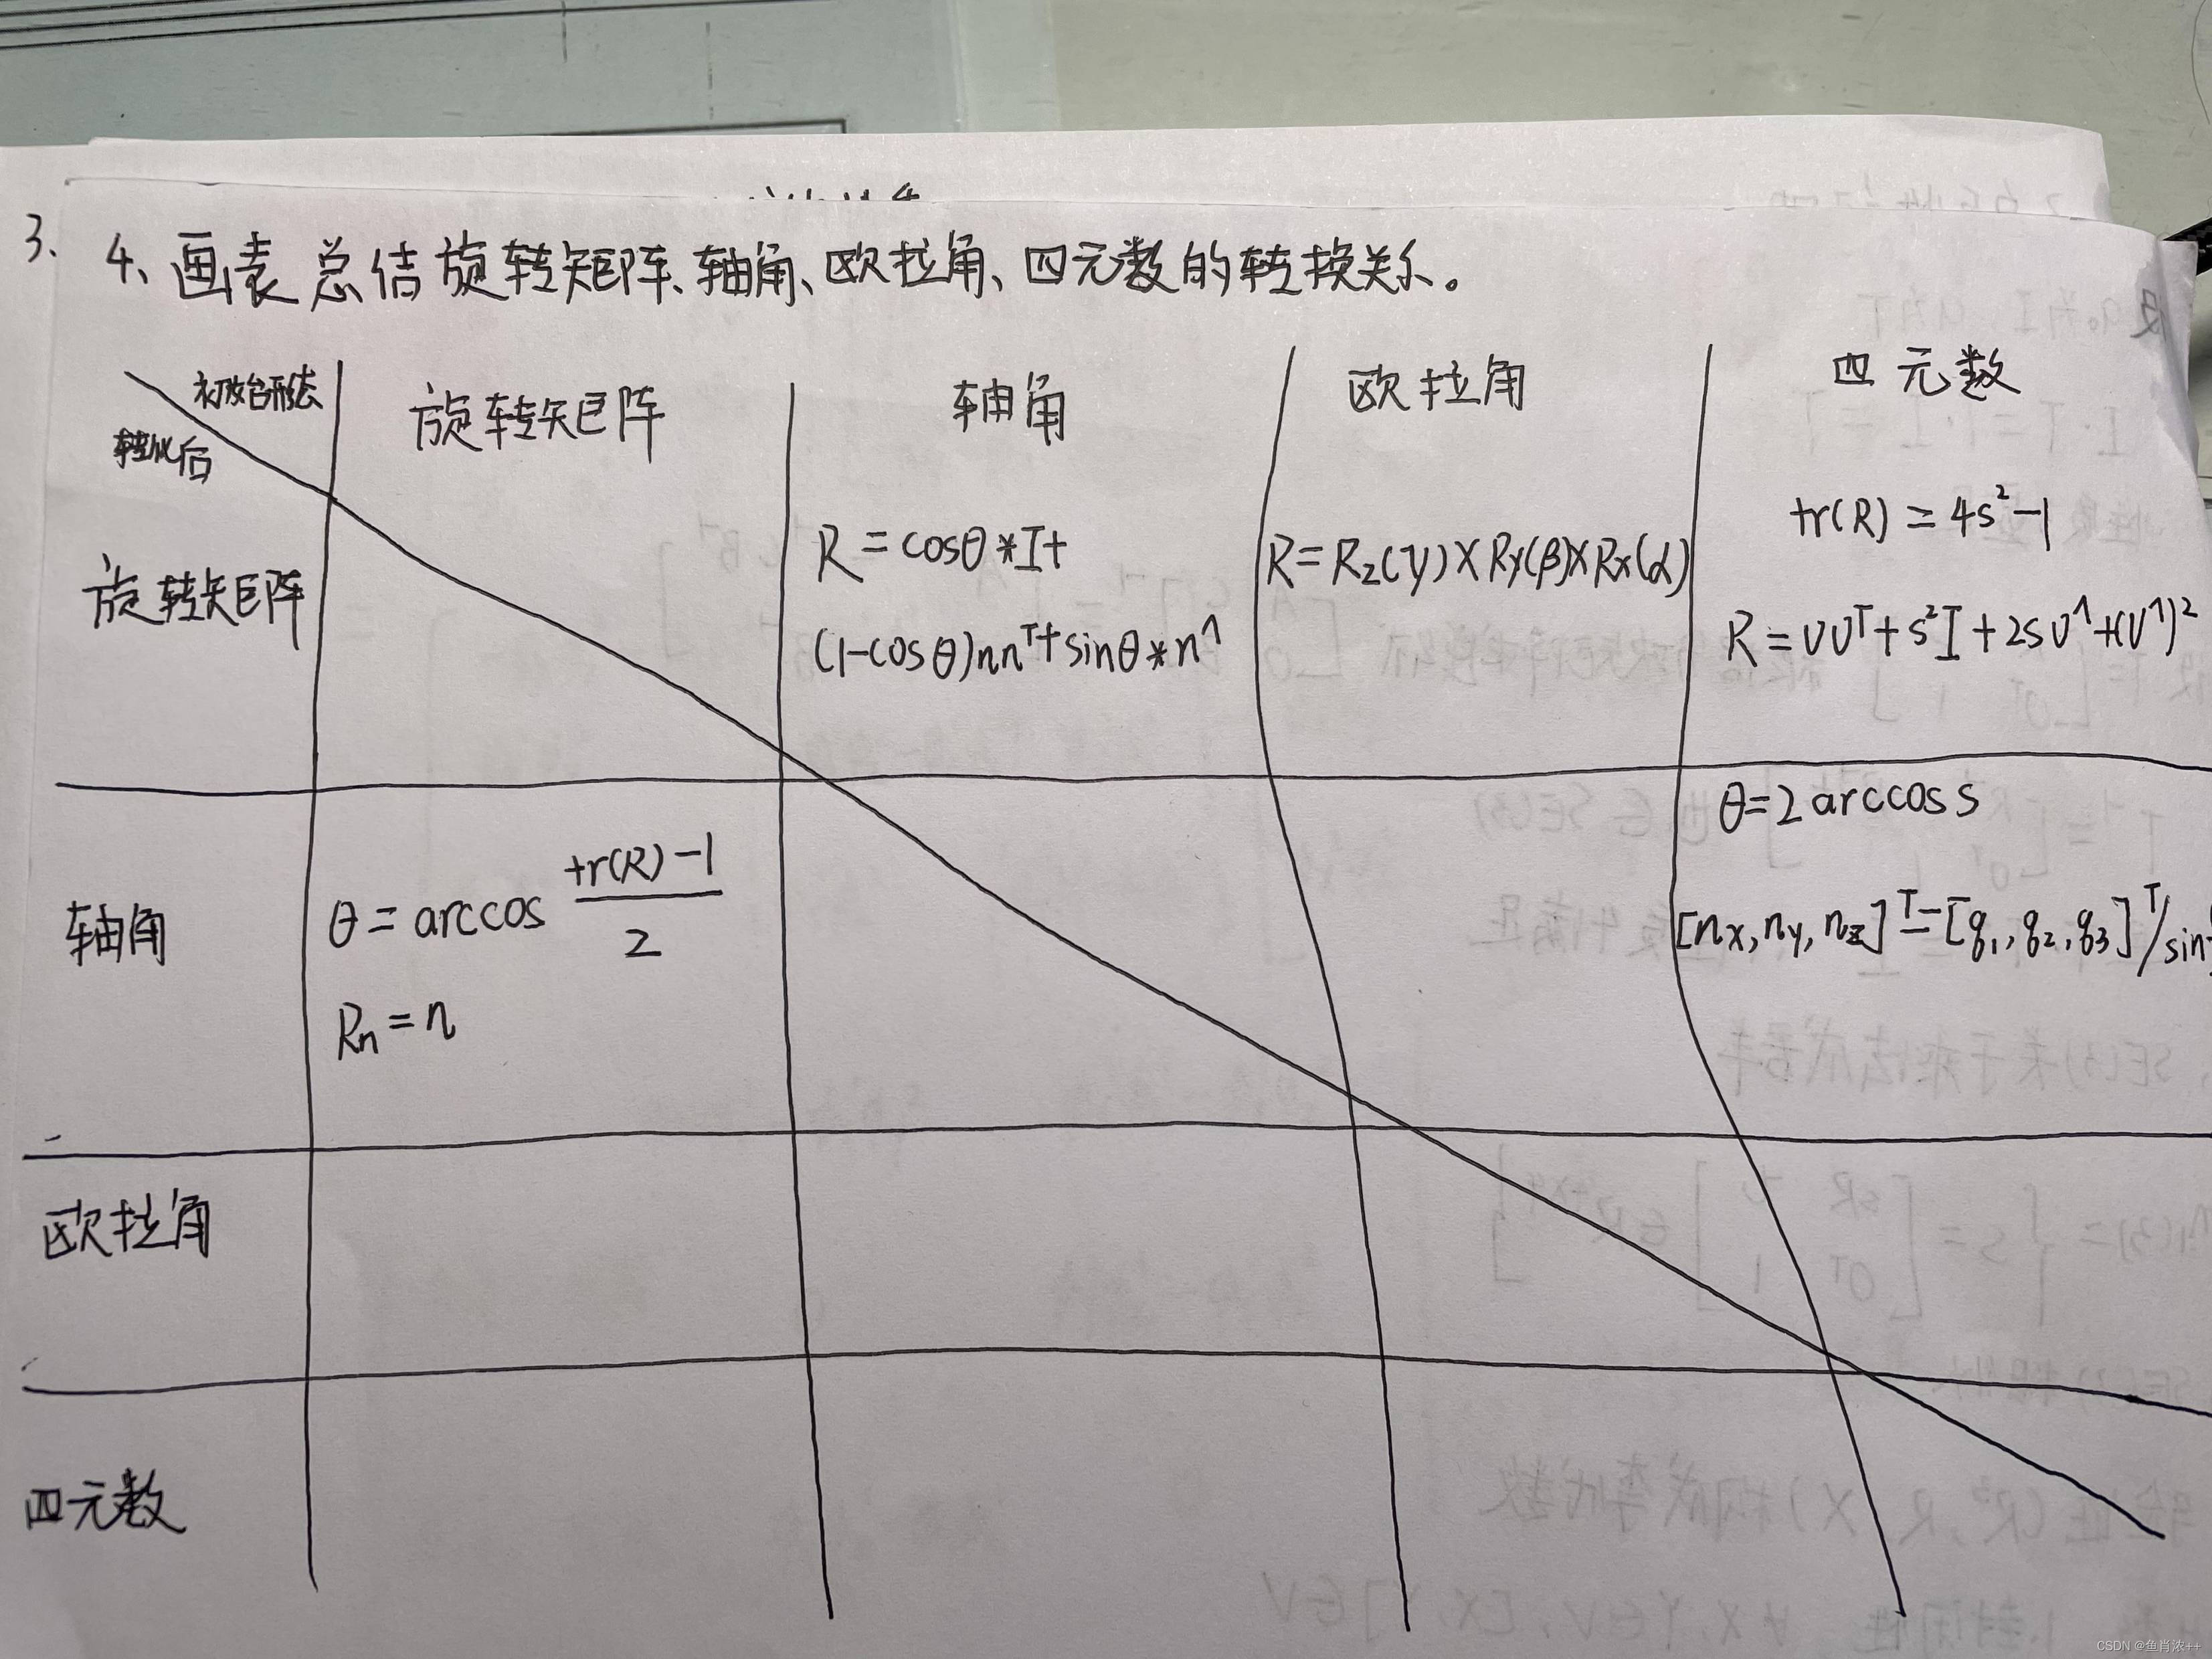 3、4、画表总结旋转矩阵、轴角、欧拉角、四元数的转换关系。
初始形态
转化后
旋转矩阵
轴角
欧拉角
四元数
旋转矩阵
R = cosθ*I+
(1-cosθ)nnᵀ+sinθ*n^
R=Rz(γ)×Ry(β)×Rx(α)
tr(R) = 4s²-1
R=vvᵀ+s²I+2sv^+(v^)²
轴角
θ = arccos (tr(R)-1)/2
Rn = n
θ=2arccos s
[nx, ny, nz]ᵀ=[q₁, q₂, q₃]ᵀ/sin
欧拉角
四元数
CSDN @鱼肖浓++